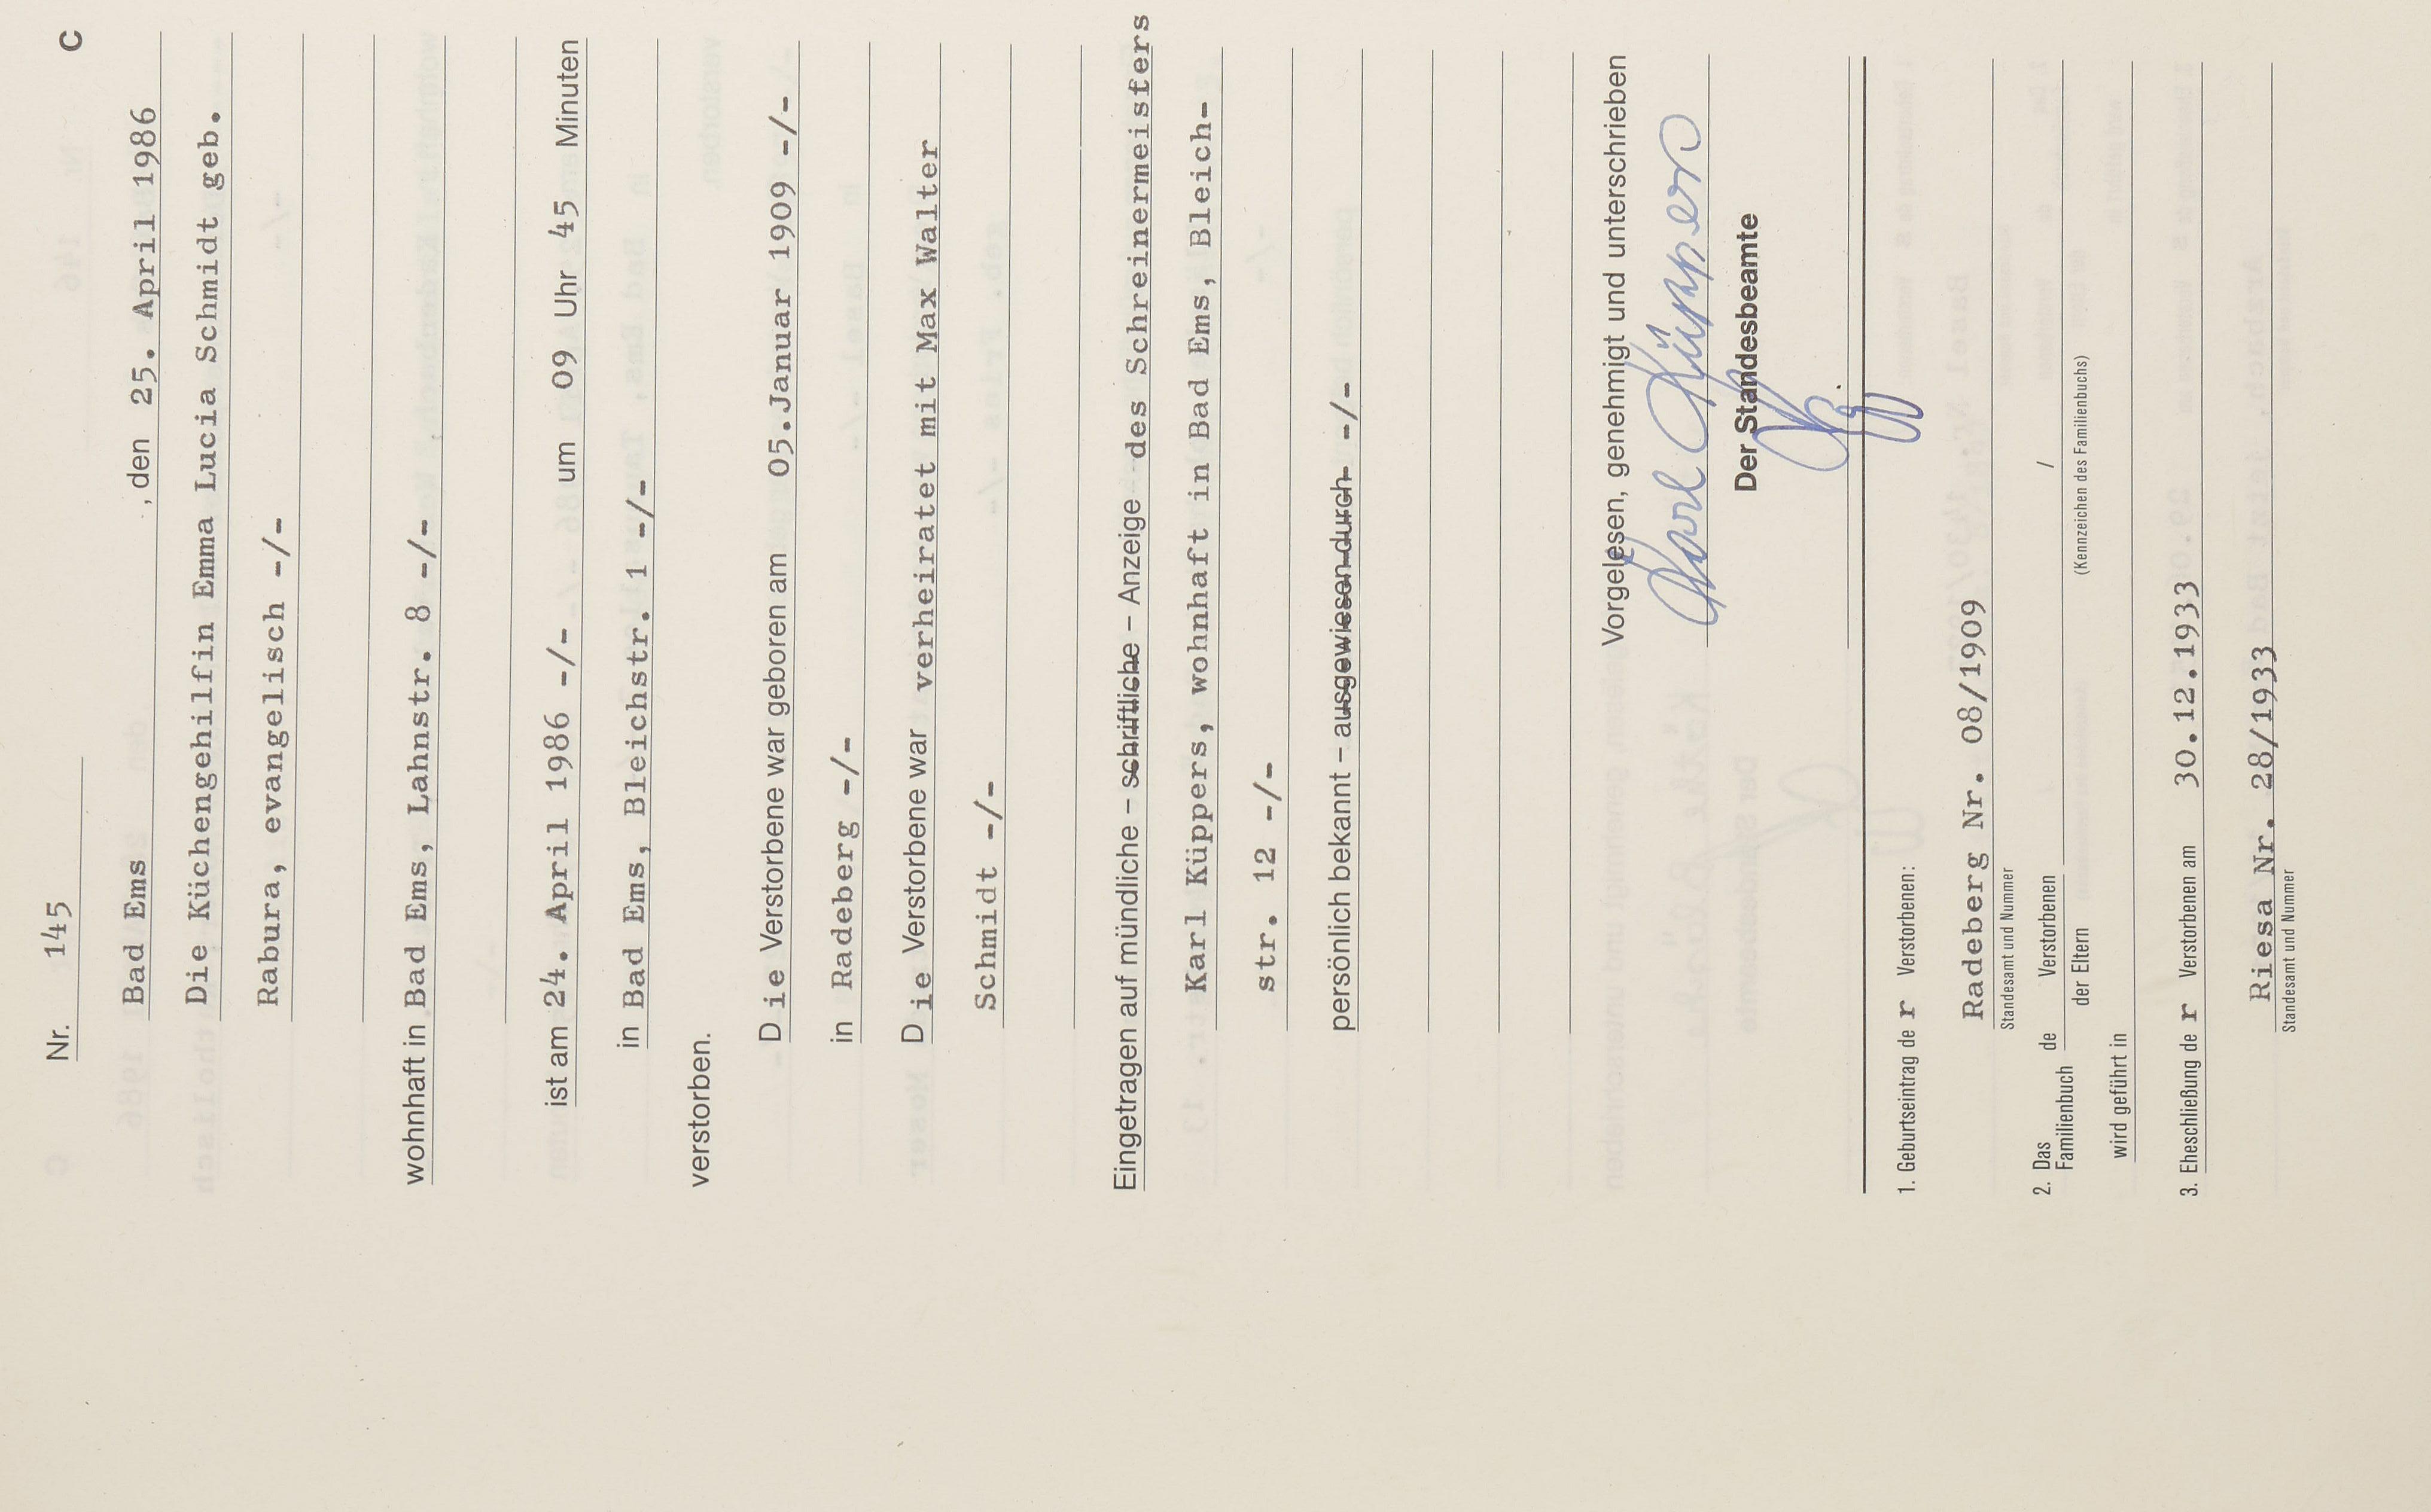 Nr. 145 C
Bad Ems , den 25. April 1986
Die Küchengehilfin Emma Lucia Schmidt geb.
Rabura, evangelisch -/-
wohnhaft in Bad Ems, Lahnstr. 8 -/-
ist am 24. April 1986 -/- um 09 Uhr 45 Minuten
in Bad Ems, Bleichstr. 1 -/-
verstorben.
Die Verstorbene war geboren am 05.Januar 1909 -/-
in Radeberg -/-
Die Verstorbene war verheiratet mit Max Walter
Schmidt -/-
Eingetragen auf mündliche – schriftliche – Anzeige des Schreinermeisters
Karl Küppers, wohnhaft in Bad Ems, Bleich-
str. 12 -/-
persönlich bekannt – ausgewiesen durch -/-
Vorgelesen, genehmigt und unterschrieben
Karl Küppers
Der Standesbeamte
1. Geburtseintrag der Verstorbenen:
Radeberg Nr. 08/1909
Standesamt und Nummer
2. Das Familienbuch de Verstorbenen /
der Eltern (Kennzeichen des Familienbuchs)
wird geführt in
3. Eheschließung der Verstorbenen am 30.12.1933
Riesa Nr. 28/1933
Standesamt und Nummer